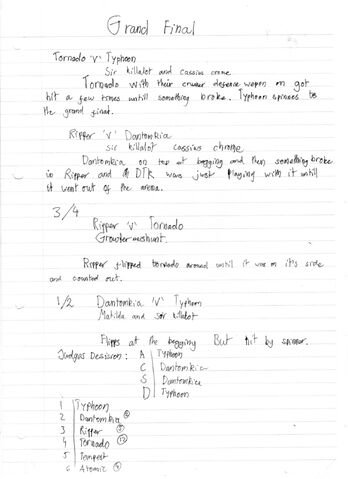 Grand Final
Tornado 'V' Typhoon
Sir killalot and cassius crome
Tornado with their crusher defense wepon on got
hit a few times untill something broke. Typhoon spinees to
the grand final.
Ripper 'V' Dantomkia
Sir killalot cassius chrome
Dantomkia on top at begging and then something broke
in Ripper and DTK was just playing with it until
it went out of the arena.
3/4
Ripper 'V' Tornado
Ripper flipped tornado around until it was on it's side
and counted out.
1/2 Dantomkia 'V' Typhoon
Matilda and Sir killalot
Flipps at the begging But hit by spinner.
Judges Desision: A Typhoon
C Dantomkia
S Dantomkia
D Typhoon
1 Typhoon
2 Dantomkia
3 Ripper
4 Tornado 12
5 Tempest
6 Atomic